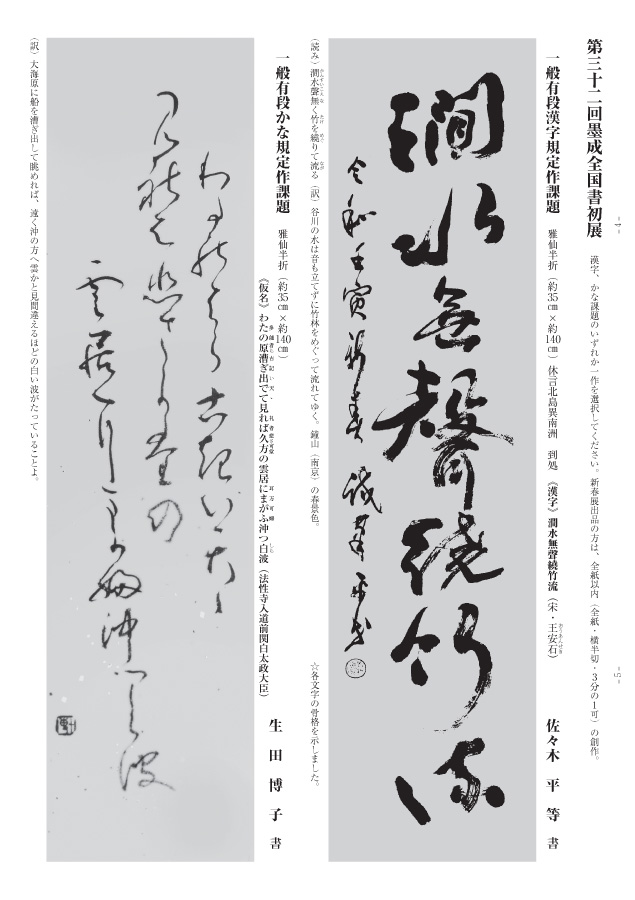 第三十二回墨成全国書初展
漢字、かな課題のいずれか一作を選択してください。新春展出品の方は、全紙以内（全紙・横半切・3分の1可）の創作。
一般有段漢字規定作課題　雅仙半折（約35㎝×約140㎝）　休言北島異南洲　到処　《漢字》澗水無聲繞竹流（宋・王安石）　佐々木　平　等　書
澗水無聲繞竹流
（読み）澗水聲無く竹を繞りて流る（訳）谷川の水は音も立てずに竹林をめぐって流れてゆく。鐘山（南京）の春景色。
☆各文字の骨格を示しました。
一般有段かな規定作課題　雅仙半折（約35㎝×約140㎝）
《仮名》わたの原漕ぎ出でて見れば久方の雲居にまがふ沖つ白波（法性寺入道前関白太政大臣）　生　田　博　子　書
（訳）大海原に船を漕ぎ出して眺めれば、遠く沖の方へ雲かと見間違えるほどの白い波がたっていることよ。
-4-
-5-